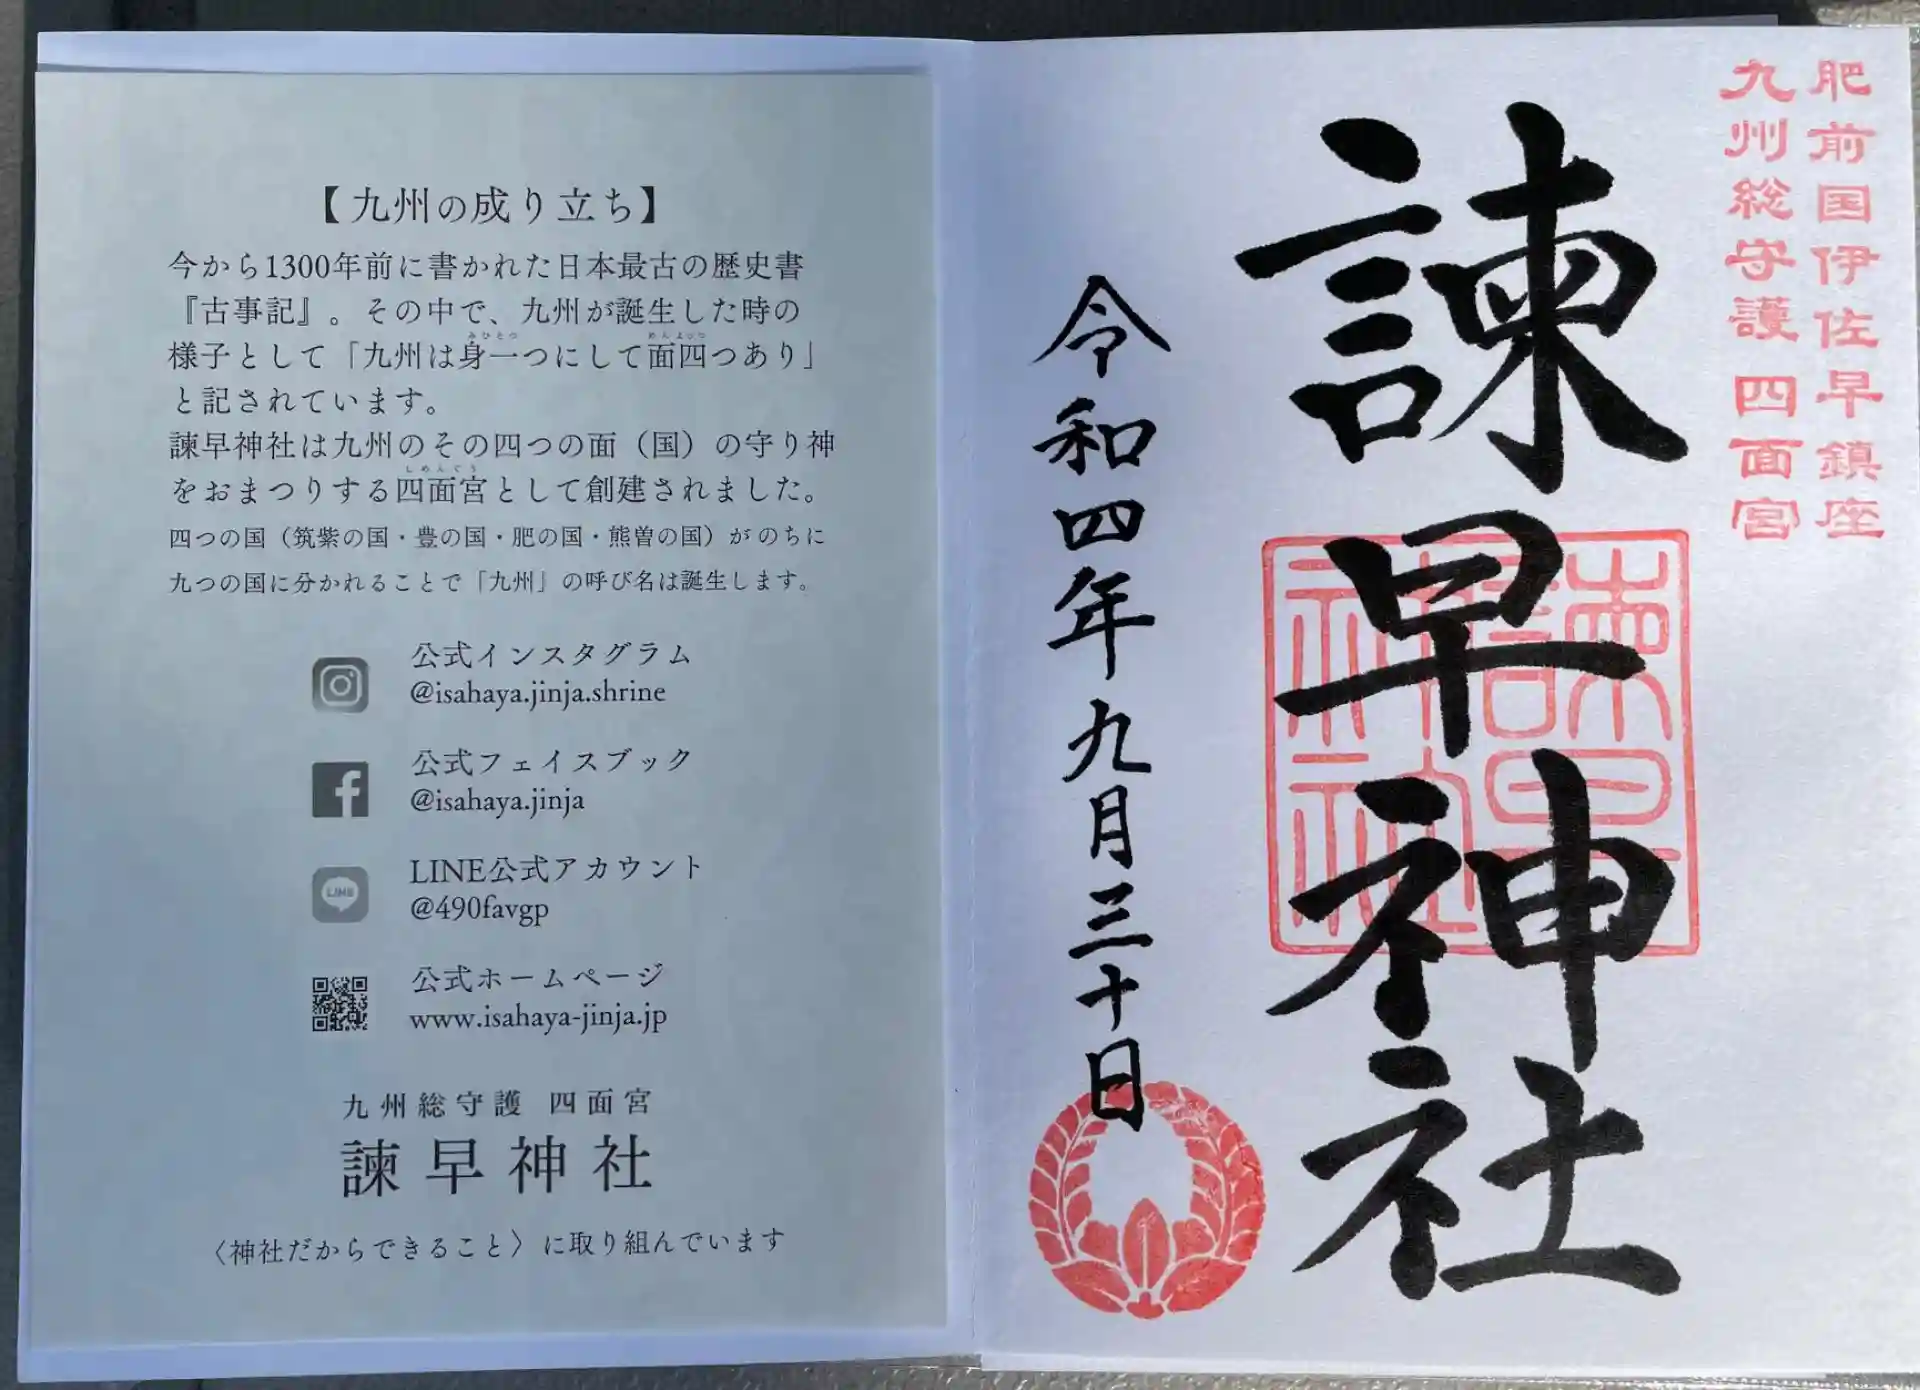 【九州の成り立ち】
今から1300年前に書かれた日本最古の歴史書
『古事記』。その中で、九州が誕生した時の
様子として「九州は身一つにして面四つあり」
と記されています。
諫早神社は九州のその四つの面（国）の守り神
をおまつりする四面宮として創建されました。
四つの国（筑紫の国・豊の国・肥の国・熊曽の国）がのちに
九つの国に分かれることで「九州」の呼び名は誕生します。
公式インスタグラム
@isahaya.jinja.shrine
公式フェイスブック
@isahaya.jinja
LINE
LINE公式アカウント
@490favgp
公式ホームページ
www.isahaya-jinja.jp
九州総守護 四面宮
諫早神社
〈神社だからできること〉に取り組んでいます
肥前国伊佐早鎮座
九州総守護 四面宮
諫早神社
諫早神社
令和四年九月三十日